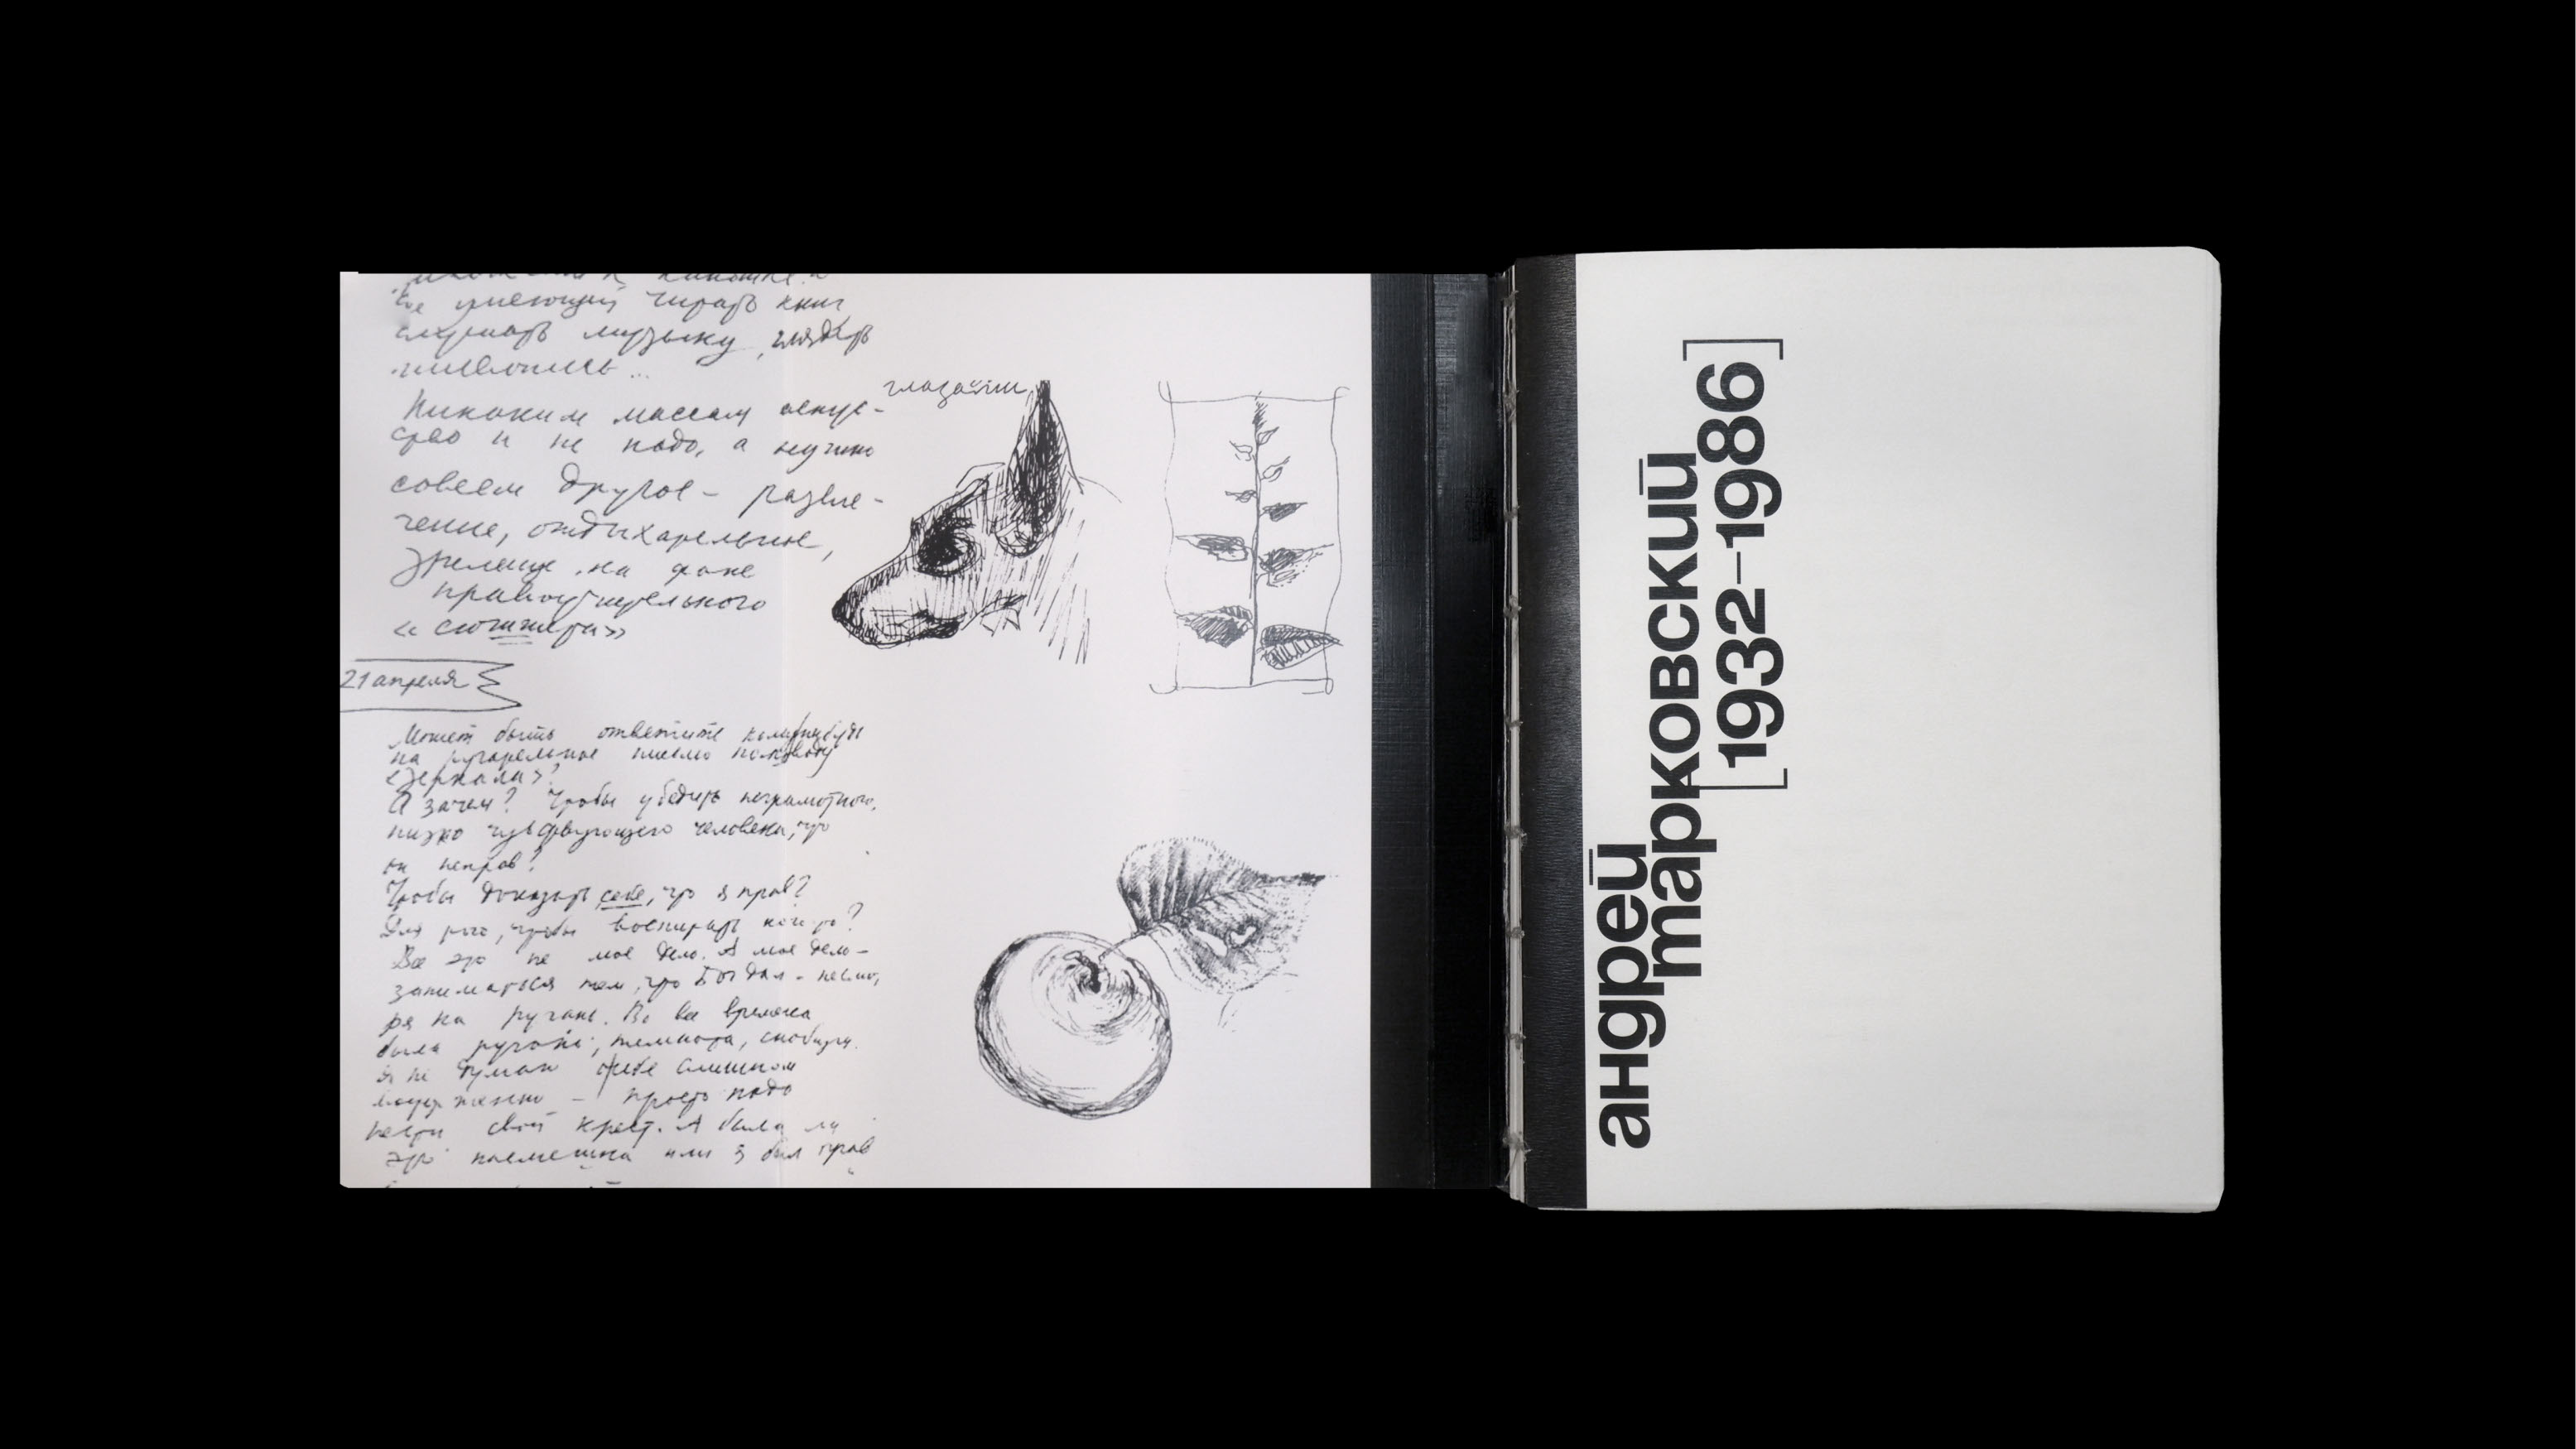 не умеющий читать книг
слушать музыку, глядеть
живопись...
Никаким массам искус-
ство и не надо, а нужно
совсем другое – развле-
чение, отдыхательное,
зрелище на фоне
нравоучительного
« сюжжета »
глазайти
21 апреля
Может быть ответите когда нибудь
на ругательное письмо по поводу
«Зеркала»?
А зачем? Чтобы убедить неграмотного,
низко чувствующего человека, что
он неправ?
Чтобы доказать себе, что я прав?
Для того, чтобы воспитать кого то?
Все это не мое дело. А мое дело –
заниматься тем, что Бог дал – несмо,
тря на ругань. Во все времена
была ругань, темнота, снобизм.
Я не думаю о себе слишком
– просто надо
нести свой крест. А была ли
это насмешка или я был прав
андрей
тарковский
[1932–1986]